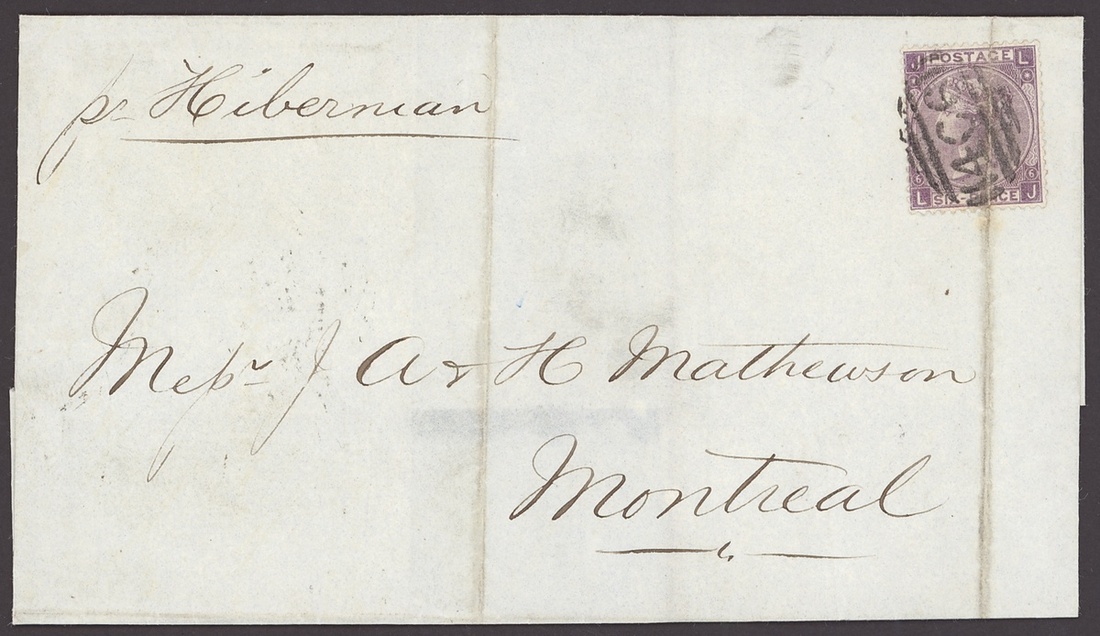 pr Hibernian
J POSTAGE L
6 6
L SIX-PENCE J
Messrs J A & H Mathewson
Montreal